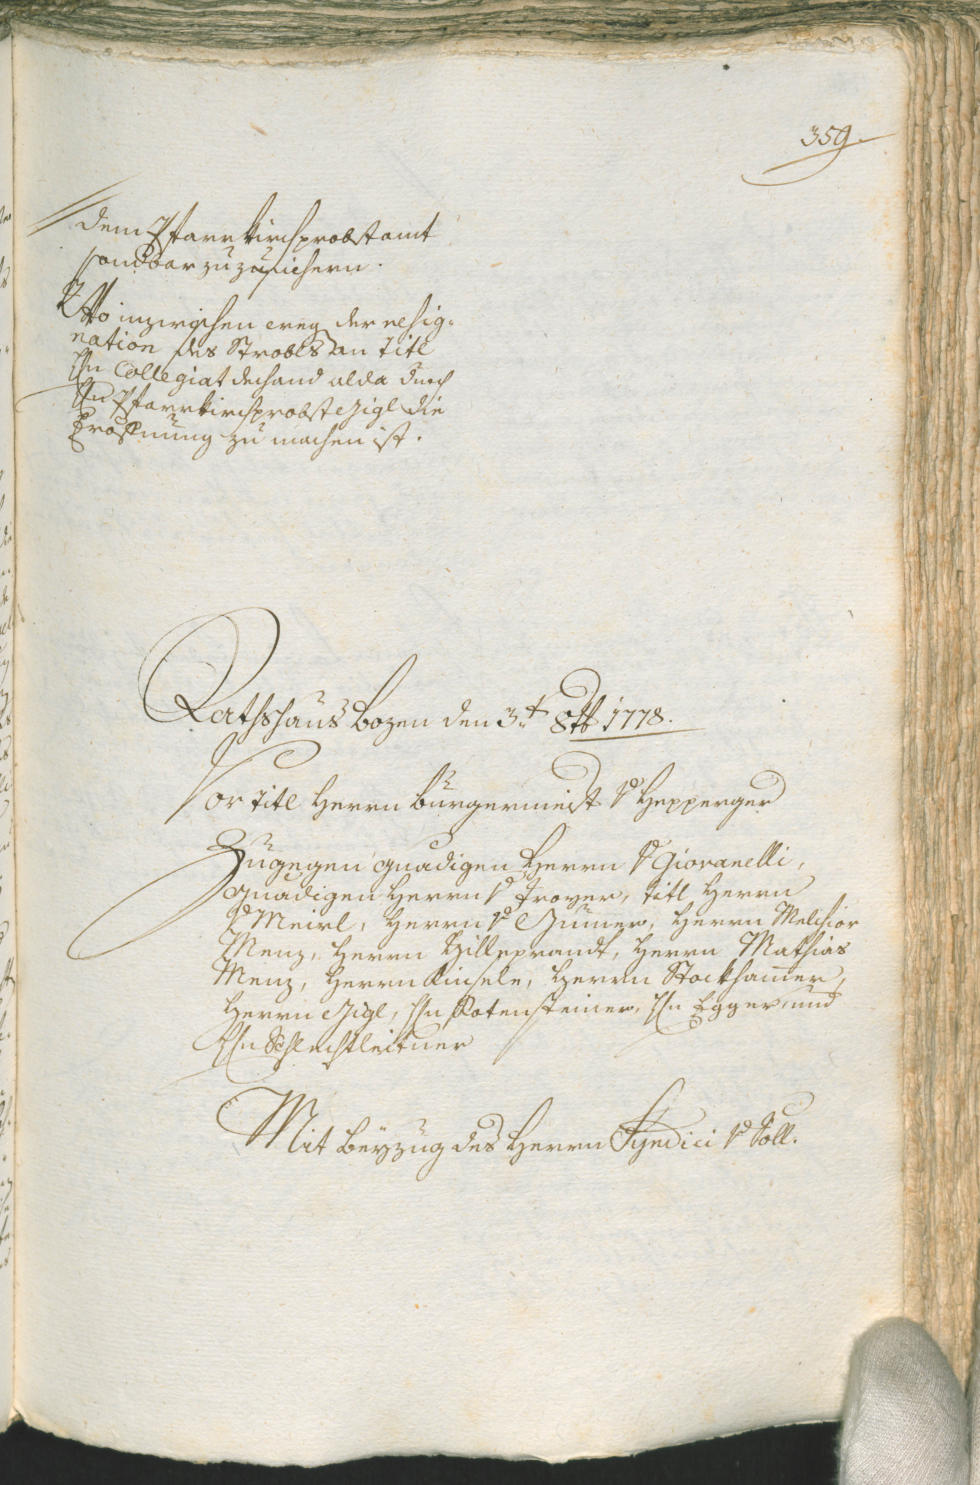 359.
dem Pfarrkirchprobstamt
sandbar zuzusichern.
Wo inzwischen ereg der resig-
nation des Strobls an titl
Hn Collegiat dechand alda durch
Hn Pfarrkirchprobst Gigl die
Eröffnung zu machen ist.
Rathshaus Bozen den 3.t 8tb 1778.
Vor titl Herrn Bürgermeist. v Hepperger
Zugegen gnädigen Herrn v Giovanelli,
gnädigen Herrn v Troyer, titl Herrn
v Meirl, Herrn v Gumer, Herrn Melchior
Menz, Herrn Hilleprandt, Herrn Mathias
Menz, Herrn Kinsele, Herrn Stockhamer,
Herrn Gigl, Hn Rotensteiner, Hn Egger und
Hn Schlechtleitner
Mit beyzug des Herrn Syndici v Söll.